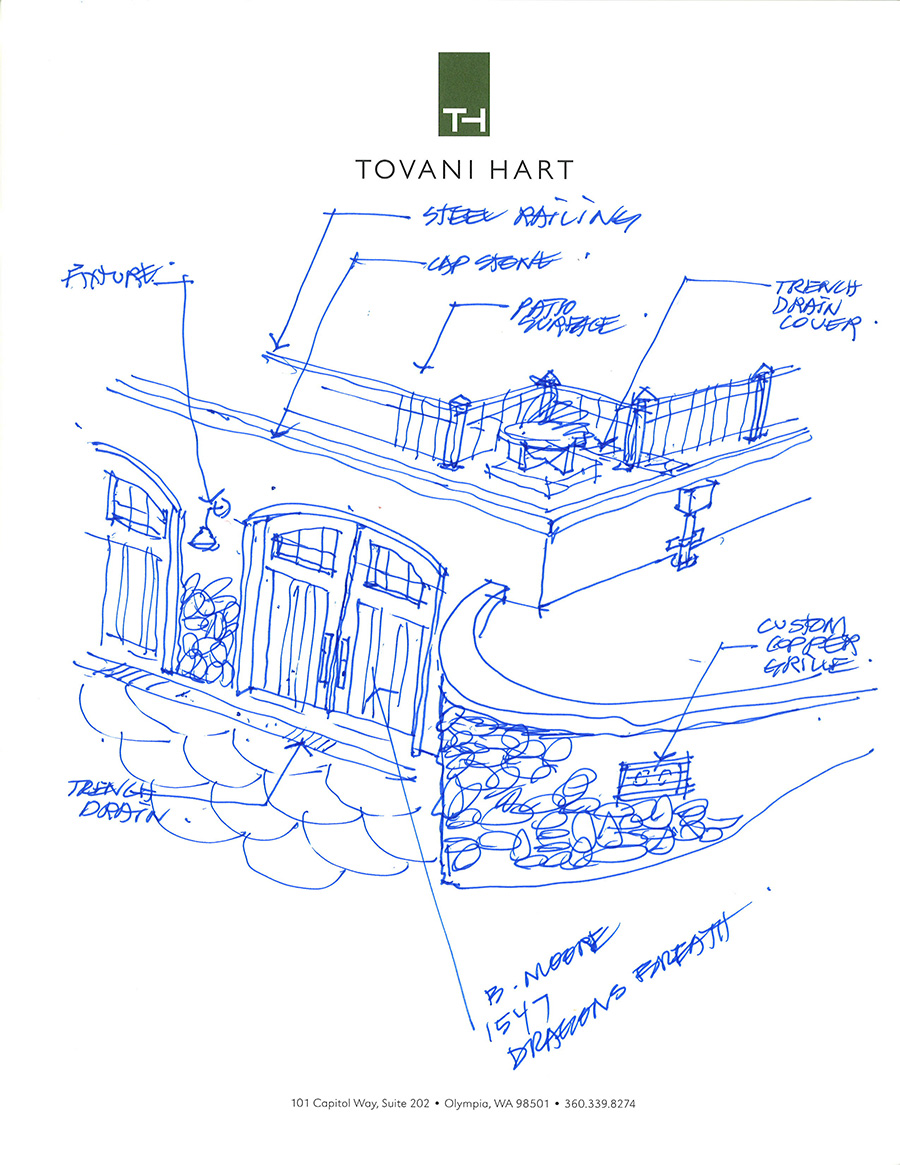 TH
TOVANI HART
STEEL RAILING
CAP STONE
FIXTURE
PATIO
SURFACE
TRENCH
DRAIN
COVER.
CUSTOM
COPPER
GRILLE.
TRENCH
DRAIN.
B. MOORE
1547
DRAGONS BREATH
101 Capitol Way, Suite 202 • Olympia, WA 98501 • 360.339.8274